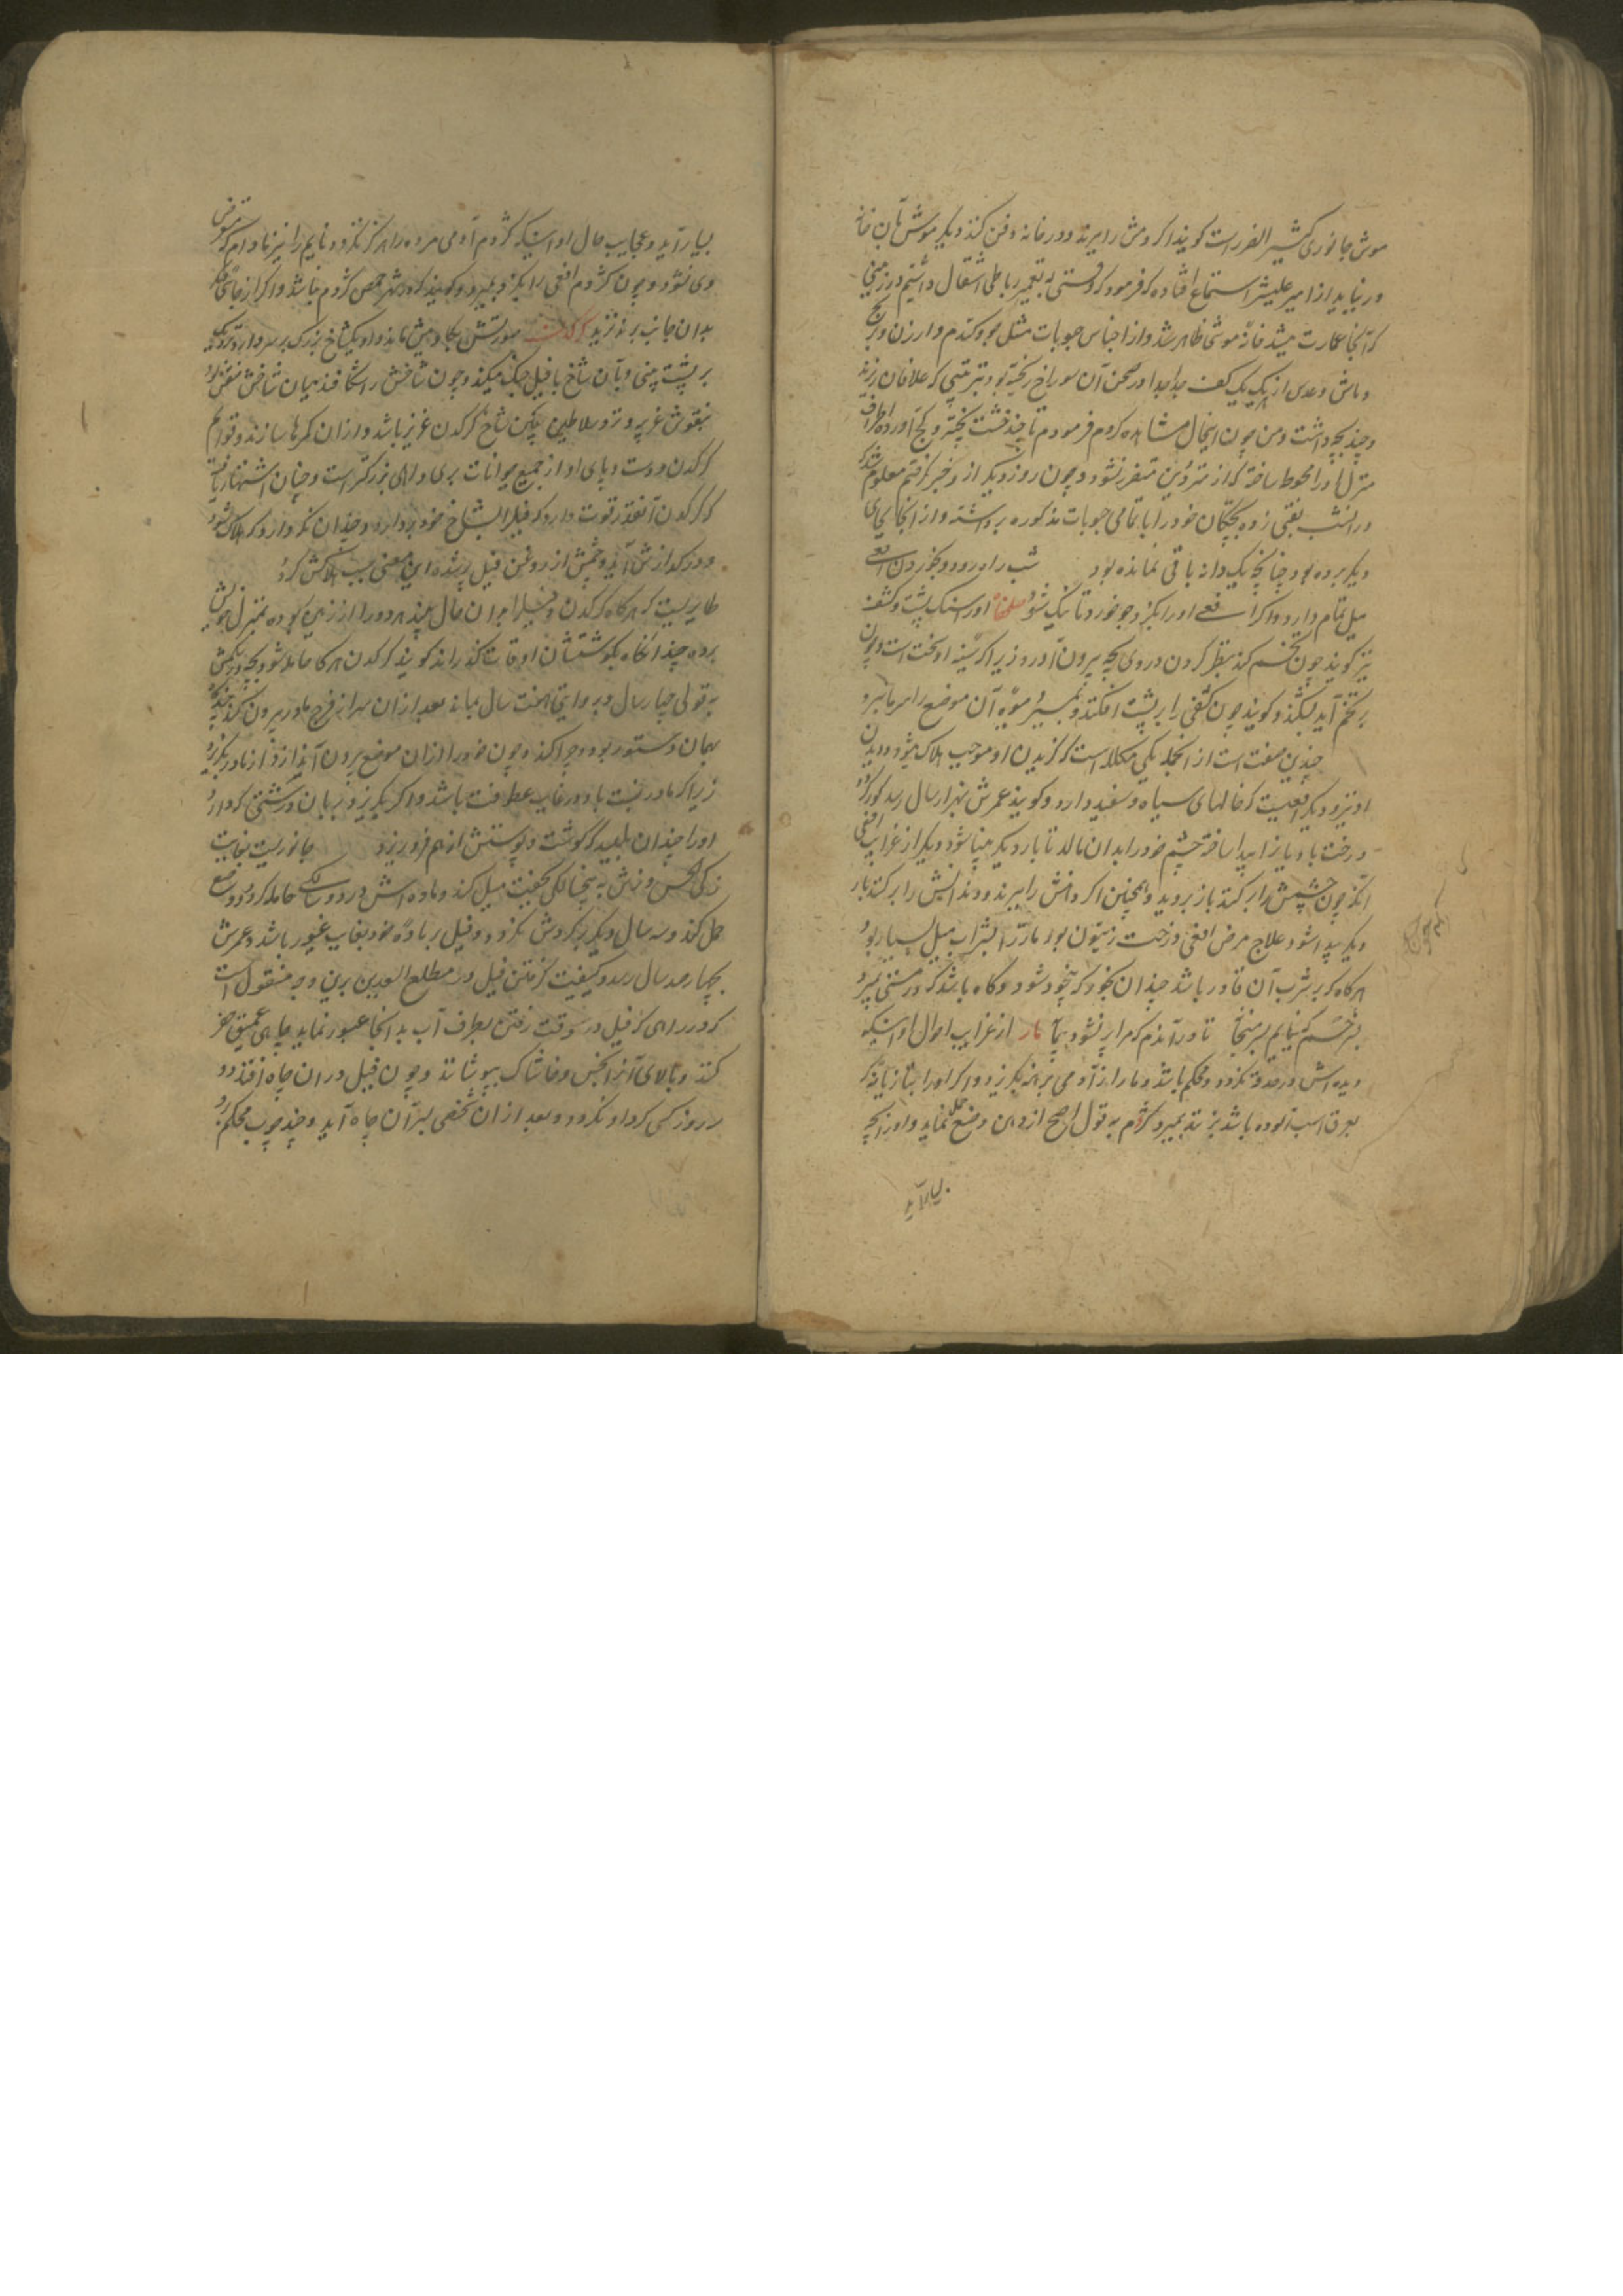 موش جانوری کثیر الضرر است گویند اگر دمش را ببرند و در خانه دفن کنند دیگر موش بآن خانه
در نیاید از امیر علیشیر استماع افتاده که فرمود که وقتی به تعمیر رباطی اشتغال داشتیم در زمینی
که آنجا عمارت میشد خانه موشی ظاهر شد و از اجناس حبوبات مثل جو و گندم و ارزن و برنج
و ماش و عدس از هر یک یک کف جدا جدا در صحن آن سوراخ ریخته بود بترتیبی که علافان ریزند
و چند بچه داشت و من چون اینحال مشاهده کردم فرمودم تا چند خشت پخته و گچ آورده اطراف
منزل او را محوط ساخته که از مترددین متضرر نشود و چون روز دیگر از و خبر گرفتم معلوم شد که
در انشب نقبی زده بچگان خود را با تمامی حبوبات مذکوره برداشته و از آنجا بجای
دیگر برده بود چنانچه یک دانه باقی نمانده بود شب راه رود و بخوردن افعی
میل تمام دارد و اگر افعی او را بگزد جو خورد تا نیک شود سلحفاة او را سنگ پشت و کشف
نیز گویند چون تخم کند بنظر کردن در وی بچه بیرون آورد زیرا که سینه او سخت است و چون
بر تخم آید بشکند و گویند چون کشفی را بر پشت افکنند
چندین صفت است از انجمله یکی مکلله است که گزیدن او موجب هلاک میشود و دیدن
او نیز و دیگر افعیست که خالهای سیاه و سفید دارد و گویند عمرش بهزار سال رسد کور گردد
درخت بادیان را پیدا ساخته چشم خود را بدان مالد تا بار دیگر بینا شود و دیگر از غرایب افعی
آنکه چون چشمش را بر کنند باز بروید و همچنین اگر دمش را ببرند و دندانش را بر کنند بار
دیگر پیدا شود و علاج مرض افعی درخت زیتون بود مار را بشراب میل بسیار بود
هرگاه که بر شرب آن قادر باشد چندان بخورد که بیخود شود و گاه باشد که در مستی بمیرد
تا در آندم که مرا نشود مار از غرایب احوال او اینکه
دیده اش در حدقه نگردد و محکم باشد و مار از آدمی برهنه بگریزد و اگر او را بتازیانه که
بعرق اسب آلوده باشد بزنند بمیرد کژدم به قول اصح از دهن وضع حمل نماید و او را بچه
بسیار آید
بسیار آید و عجایب حال او اینکه کژدم آدمی مرده را هرگز نگزد و نایم را نیز مادام که متعرض
وی نشود و چون کژدم افعی را بگزد بمیرد و گویند که در شهر حمص کژدم نباشد و اگر از جای دیگر
بدان جانب برند نزید کرکدن صورتش بگاومیش ماند و او یک شاخ بزرگ بر سر دارد نزدیک
بر پشت بینی و بآن شاخ با فیل جنگ میکند و چون شاخش را شکافند میان شاخش منقش بود
بنقوش غریبه و نزد سلاطین چین شاخ کرکدن عزیز باشد و از ان کمرها سازند و قوایم
کرکدن و دست و پای او از جمیع حیوانات بری و اهلی بزرگتر است و چنان اشتهار یافته
که کرکدن آنقدر قوت دارد که فیل را بشاخ خود بردارد و چندان نگه دارد که هلاک شود
و چشمش از روغن فیل پر شده این معنی سبب هلاکش گردد
طایریست که هرگاه کرکدن و فیل را بدان حال بیند هر دو را از زمین ربوده بمنزل خویش
برده چند انگاه بگوشت شان اوقات گذراند گویند کرکدن هرگاه حامله شود بچه در شکمش
به قولی چهار سال و بروایتی هفت سال بماند بعد از ان سر از فرج مادر بیرون کند
بهمان دستور بود و چرا کند و چون خود را از ان موضع بیرون آید از مادر بگریزد
زیرا که مادر نسبت باو در غایت عطوفت باشد و اگر نگریزد بزبان درشتی که دارد
او را چندان بلیسد که گوشت و پوستش از هم فرو ریزد جانوریست بغایت
زکی الحس و نرش به پنجسالگی بجفت میل کند و ماده اش در دو سالگی حامله گردد و وضع
حمل کند و سه سال دیگر نر بگردش نگردد و فیل بر ماده خود بغایت غیور باشد و عمرش
بچهار صد سال رسد و کیفیت گرفتن فیل در مطلع السعدین برین وجه منقول است
که در راهی که فیل در وقت رفتن بطرف آب بدانجا عبور نماید چاهی عمیق حفر
کنند و بالای آنرا بخس و خاشاک بپوشانند و چون فیل در ان چاه افتد دو
سه روز کسی گرد او نگردد و بعد از ان شخصی بسر آن چاه آید و چند چوب محکم برو